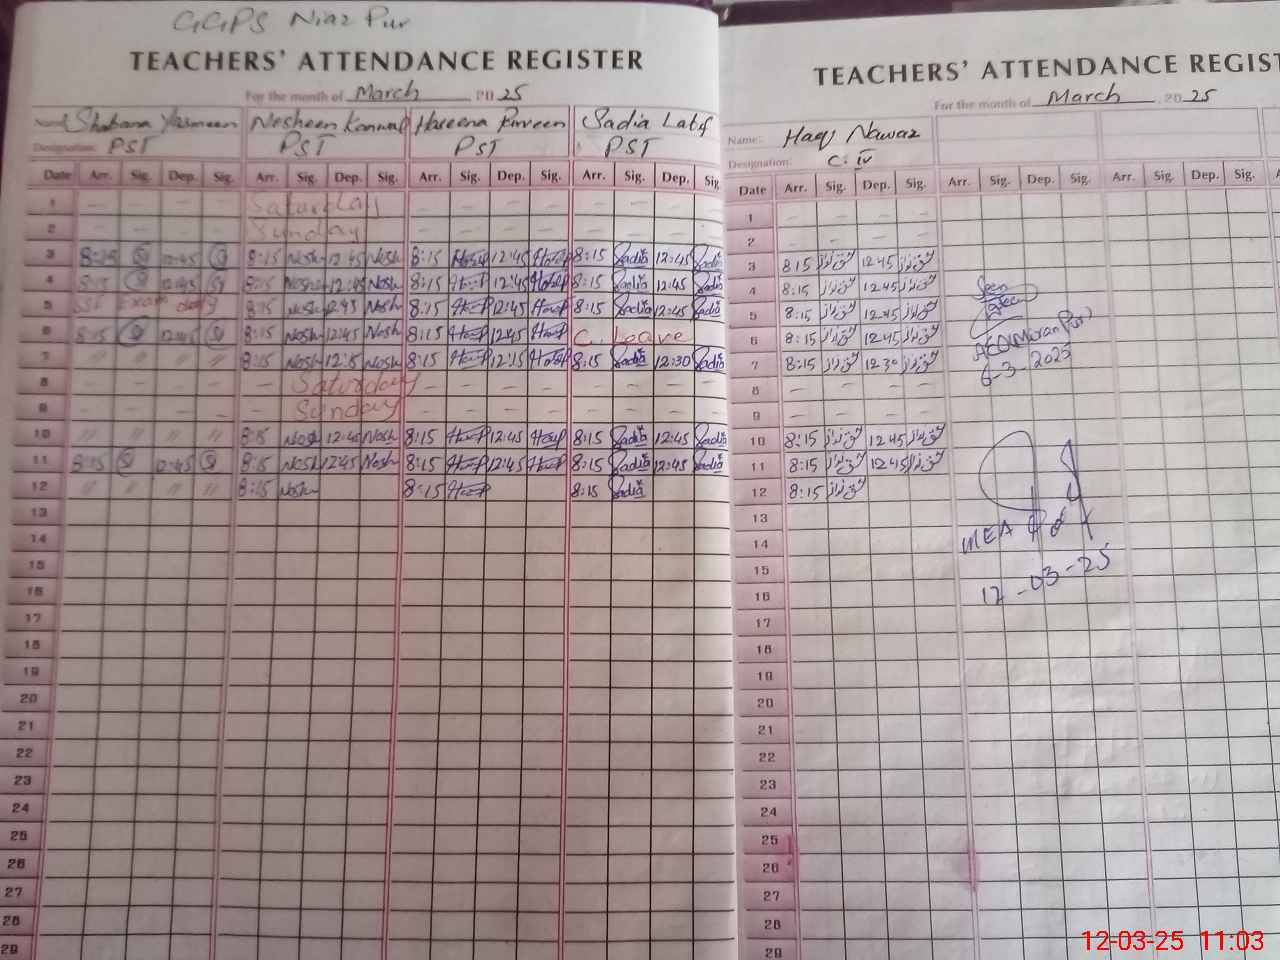 GGPS Niaz Pur
TEACHERS' ATTENDANCE REGISTER
For the month of March 2025
Name: Shabana Yasmeen Nosheen Kanwal Haseena Parveen Sadia Latif
Designation: PST PST PST PST
Date Arr. Sig. Dep. Sig. Arr. Sig. Dep. Sig. Arr. Sig. Dep. Sig. Arr. Sig. Dep. Sig.
1 – – – – Saturday – – – – – – – –
2 – – – – Sunday – – – – – – – –
3 8:15 12:45 8:15 Nosh 12:45 Nosh 8:15 12:45 8:15 Sadia 12:45 Sadia
4 8:15 12:45 8:15 Nosh 12:45 Nosh 8:15 12:45 8:15 Sadia 12:45 Sadia
5 Exam duty 8:15 Nosh 12:45 Nosh 8:15 12:45 8:15 Sadia 12:45 Sadia
6 8:15 12:45 8:15 Nosh 12:45 Nosh 8:15 12:45 C. Leave
7 " " " " 8:15 Nosh 12:15 Nosh 8:15 12:15 8:15 Sadia 12:30 Sadia
8 – – – – – Saturday – – – – – – –
9 – – – – – Sunday – – – – – – –
10 " " " " 8:15 Nosh 12:45 Nosh 8:15 12:45 8:15 Sadia 12:45 Sadia
11 8:15 12:45 8:15 Nosh 12:45 Nosh 8:15 12:45 8:15 Sadia 12:45 Sadia
12 " " " " 8:15 Nosh 8:15 8:15 Sadia
13
14
15
16
17
18
19
20
21
22
23
24
25
26
27
28
29
TEACHERS' ATTENDANCE REGIST
For the month of March 2025
Name: Haq Nawaz
Designation: C. IV
Date Arr. Sig. Dep. Sig. Arr. Sig. Dep. Sig. Arr. Sig. Dep. Sig. A
1 – – – –
2 – – – –
3 8:15 12:45
4 8:15 12:45
Seen
5 8:15 12:45
6 8:15 12:45
7 8:15 12:30
6-3-2025
8 – – – –
9 – – – –
10 8:15 12:45
11 8:15 12:45
12 8:15
13
14
MEA
15
12-03-25
16
17
18
19
20
21
22
23
24
25
26
27
28
29
12-03-25 11:03